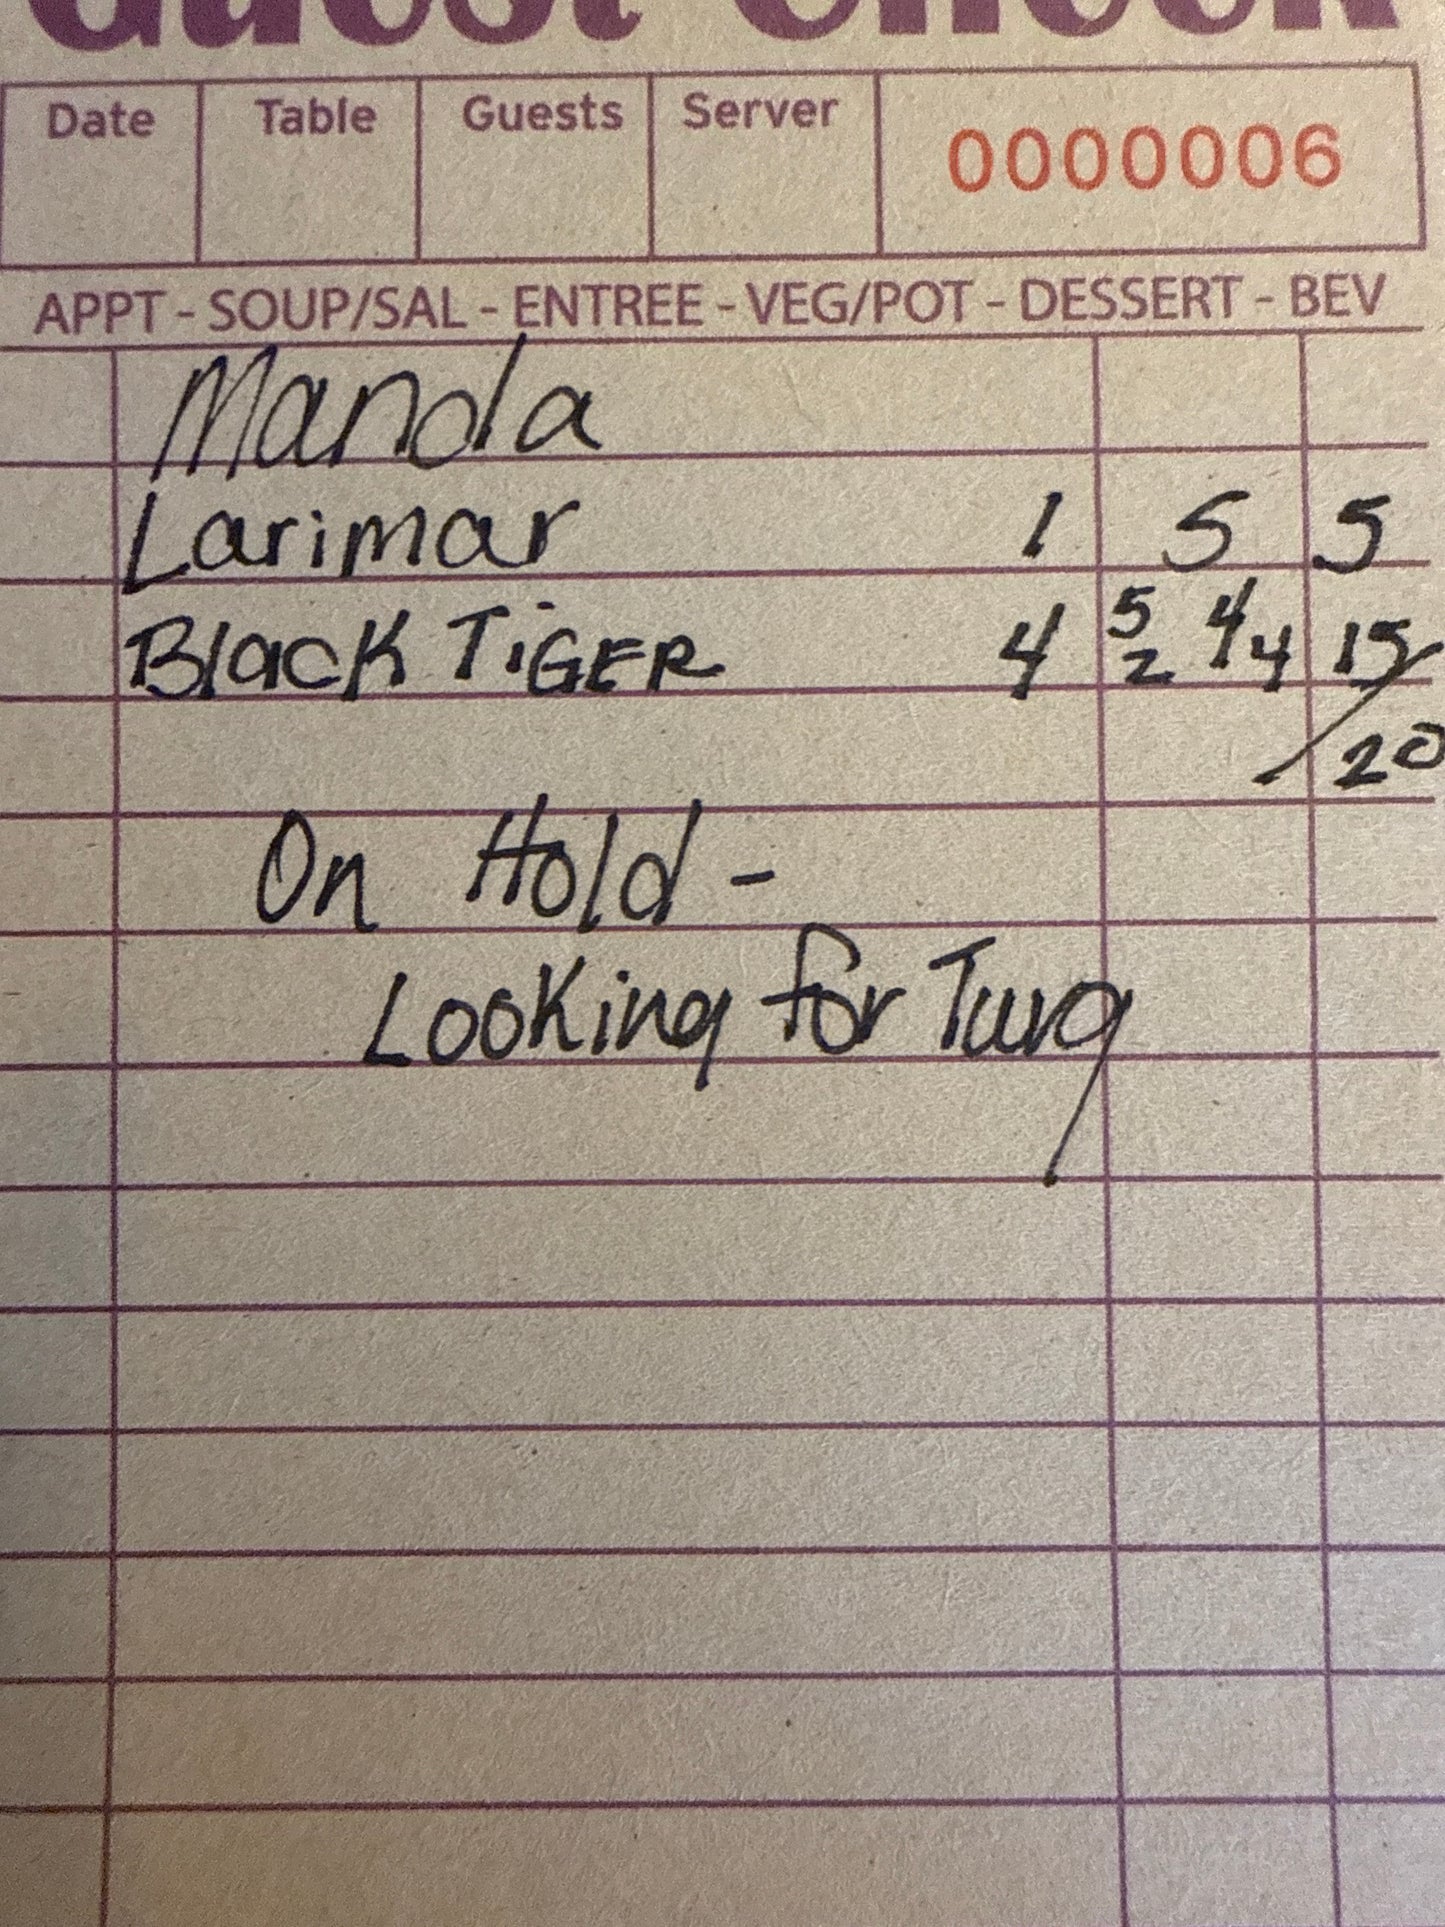 Guest Check
Date Table Guests Server 0000006
APPT - SOUP/SAL - ENTREE - VEG/POT - DESSERT - BEV
Manda
Larimar 1 5 5
Black TiGER 4 5 2 4 4 15
/20
On Hold -
Looking for Turq